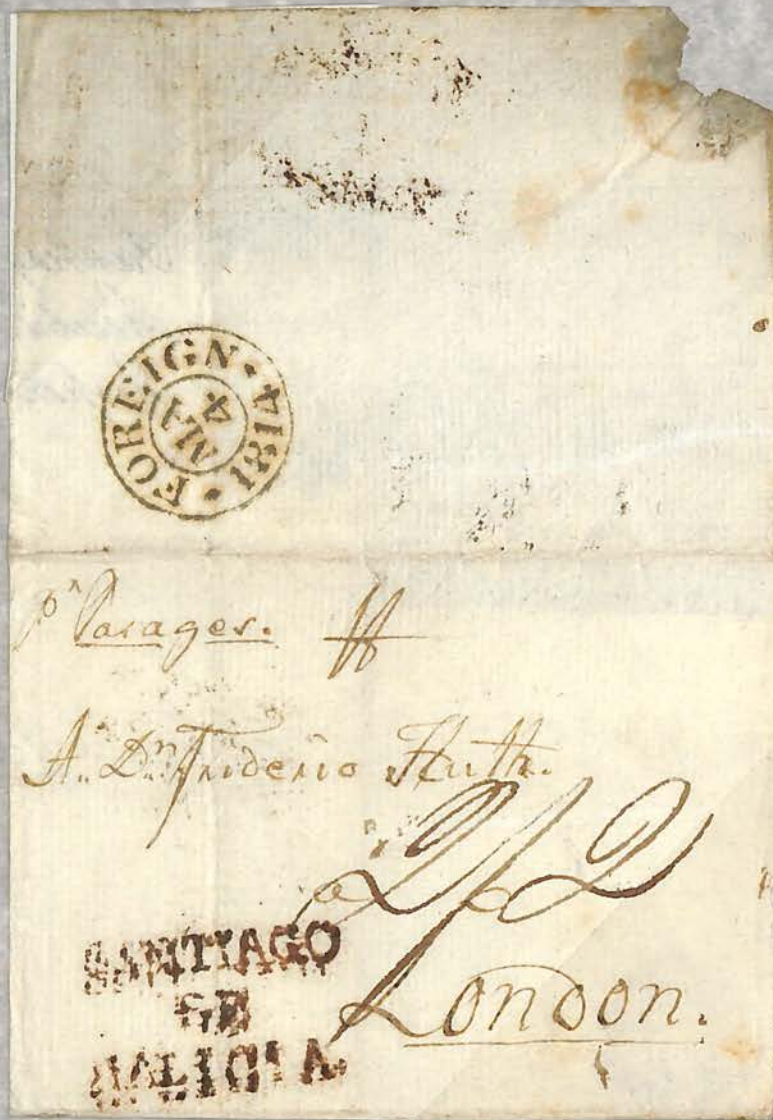 FOREIGN · 1814 ·
MA
4
pr Pasages.
A. Dn. Friderico Huth.
2/2
London.
SANTIAGO
DE
GALICIA